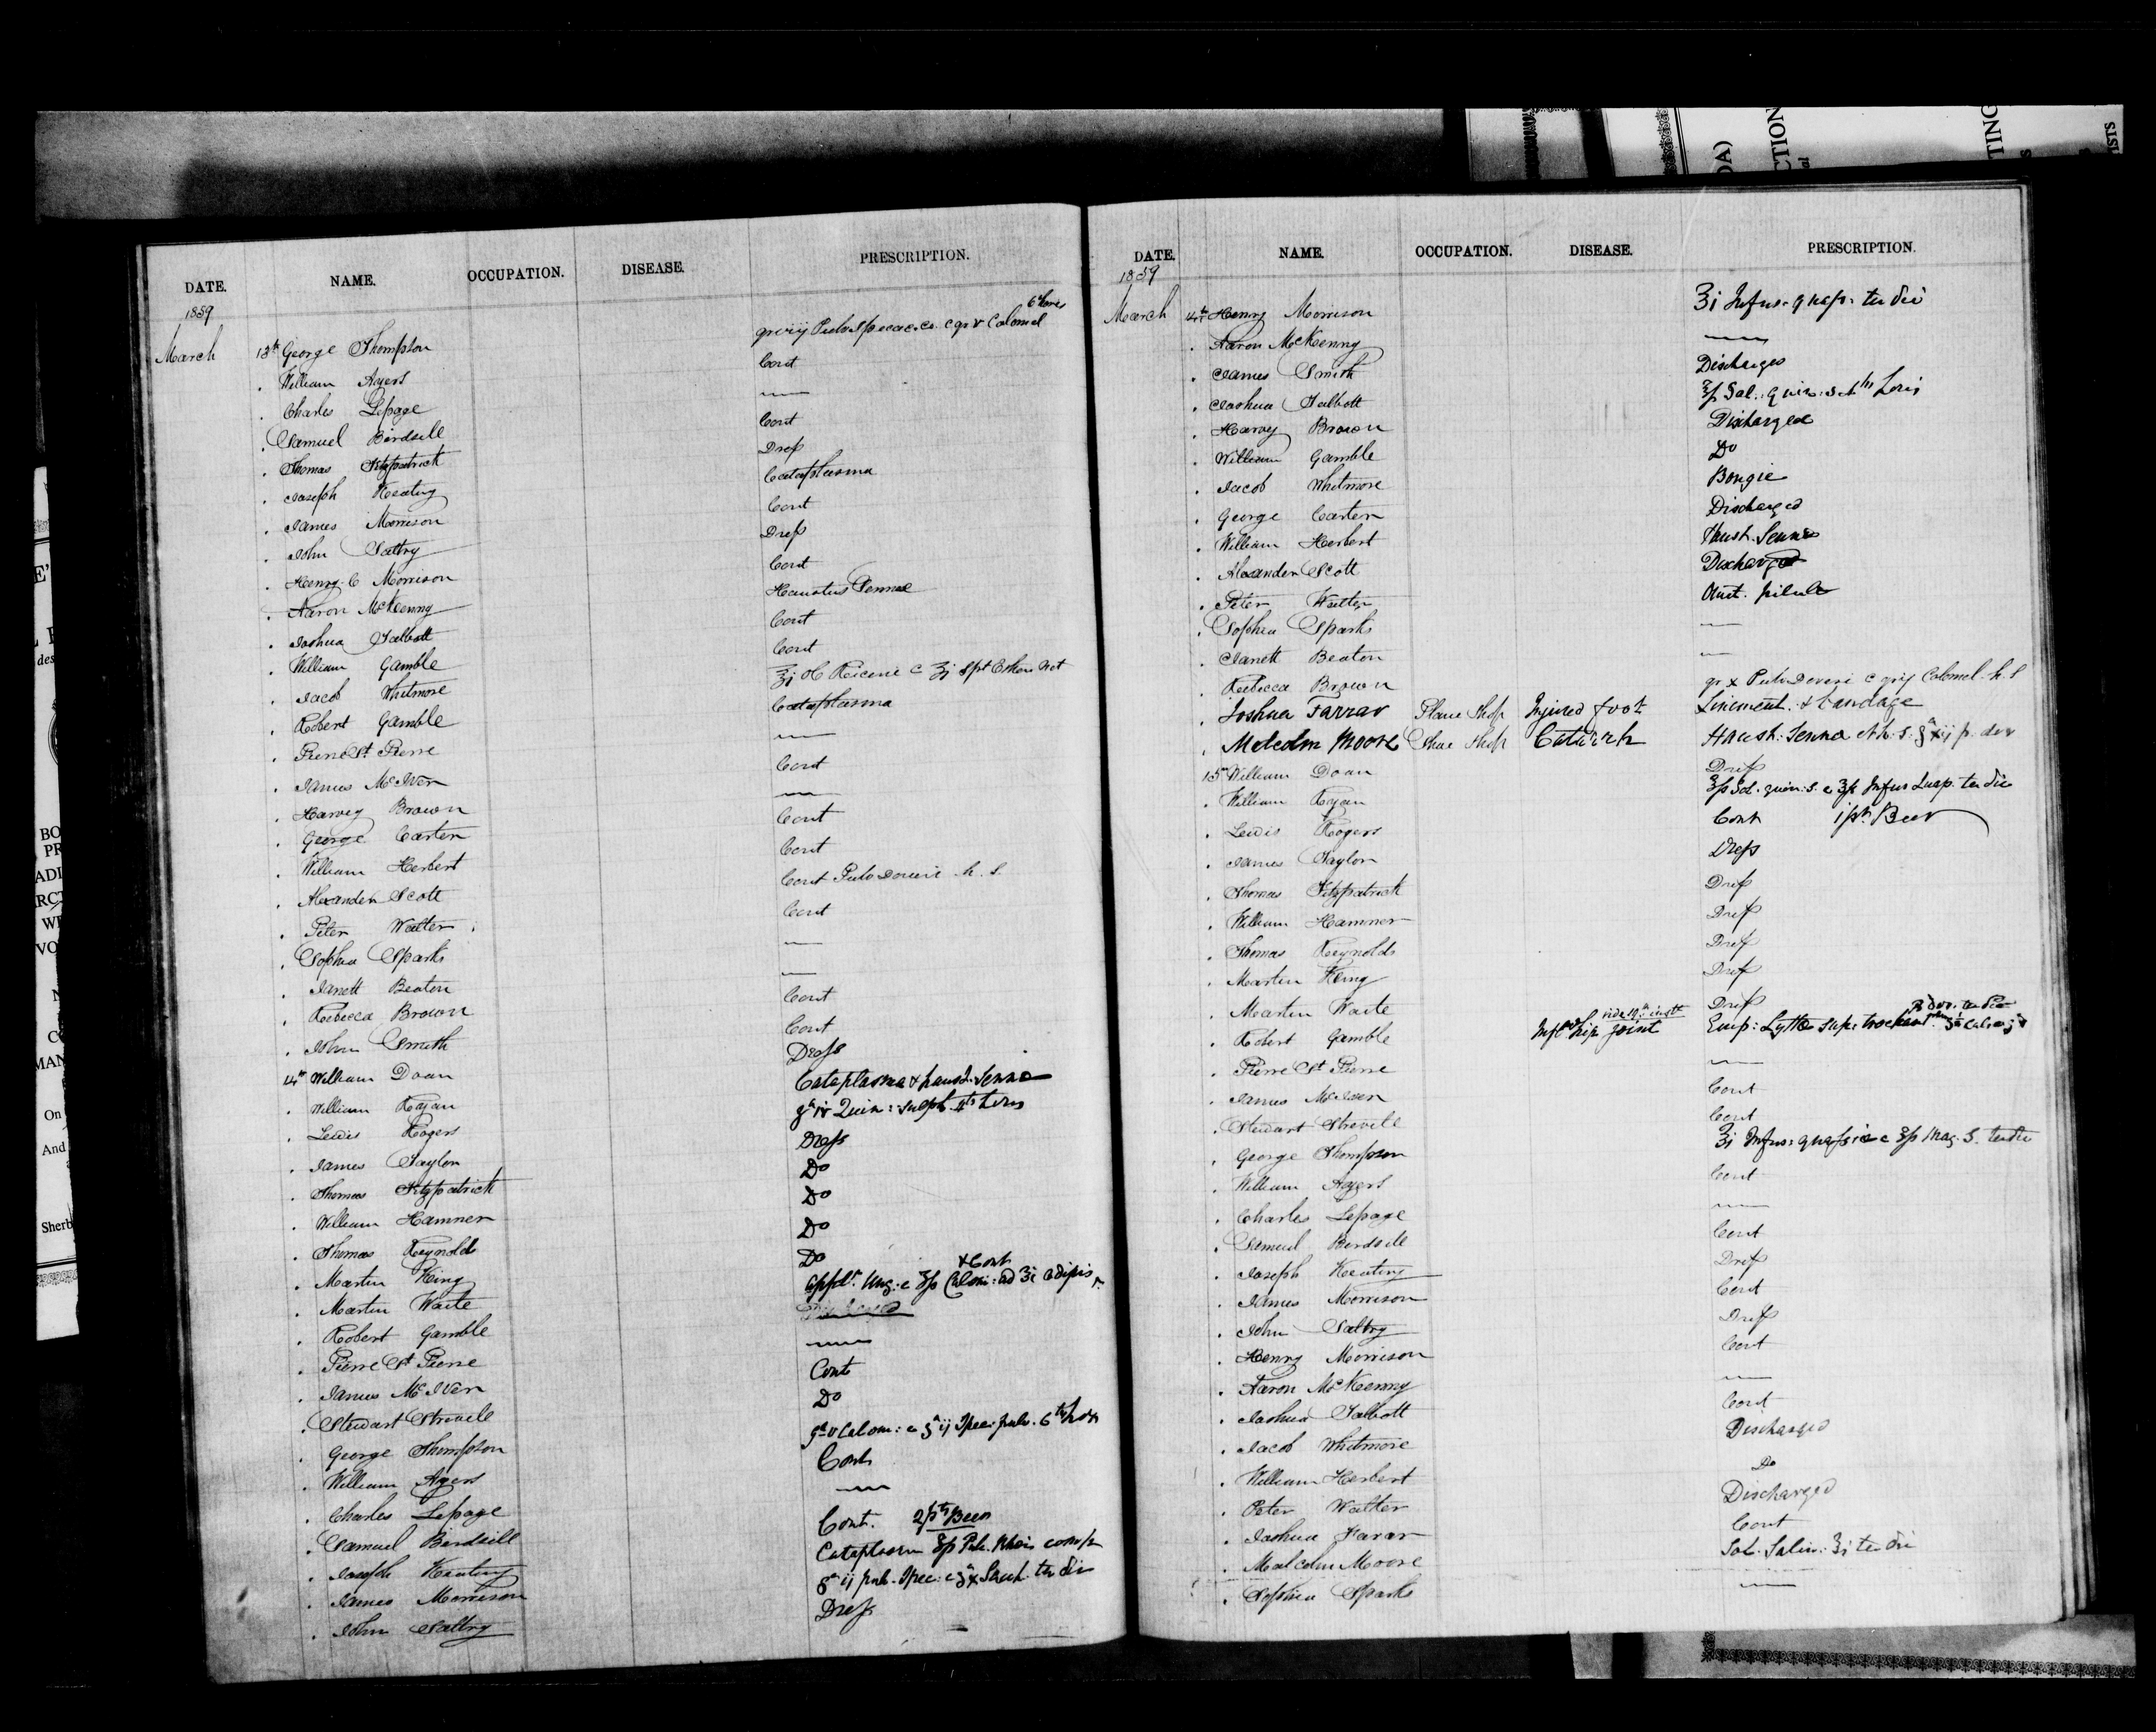 DATE. NAME. OCCUPATION. DISEASE. PRESCRIPTION.
1859
6 hours
March 13th George Thompson gr viij Pulv Ipecac. co. c gr v Calomel
. William Ayers Cont
. Charles Lepage —
. Samuel Birdsell Cont
. Thomas Fitzpatrick Dress
. Joseph Keating Cataplasma
. James Morrison Cont
. John Saltry Dress
. Henry C Morrison Cont
. Aaron McKenny Haustus Sennae
. Joshua Talbott Cont
. William Gamble Cont
. Jacob Whitmore ʒj Ol Ricini c ʒj Spt Ether Nit
. Robert Gamble Cataplasma
. Pierre St Pierre —
. James McIver Cont
. Harvey Brown —
. George Carter Cont
. William Herbert Cont
. Alexander Scott Cont Pulv Doveri h. s.
. Peter Walter Cont
. Sophia Sparks —
. Janett Beaton —
. Rebecca Brown Cont
. John Smith Cont
14th William Doan Dress
. William Ryan Cataplasma & haust. Senna
. Lewis Rogers gr iv Quin: sulph. 4tis horis
. James Taylor Dress
. Thomas Fitzpatrick Do
. William Hamner Do
. Thomas Reynolds Do
. Martin King Do & Cont
. Martin Waite Appl. Ung. c ʒss Calom: ad ʒi adipis
. Robert Gamble
. Pierre St Pierre —
. James McIver Cont
. Stewart Strevell Do
. George Thompson gr v Calom: c gr ij Ipec: pulv. 6tis hor
. William Ayers Cont
. Charles Lepage —
. Samuel Birdsell Cont. 2 pts Beer
. Joseph Keating Cataplasm ʒss Pulv. Rhei comp
. James Morrison gr ij pulv. Ipec: c gr x Sach. ter die
. John Saltry Dress
DATE. NAME. OCCUPATION. DISEASE. PRESCRIPTION.
1859
March 14th Henry Morrison ʒi Infus. quass. ter die
. Aaron McKenny —
. James Smith Discharged
. Joshua Talbott ʒss Sol: quin: s. 4tis horis
. Harvey Brown Discharged
. William Gamble Do
. Jacob Whitmore Bougie
. George Carter Discharged
. William Herbert Haust. Senna
. Alexander Scott Discharged
. Peter Walter Cont. pilula
. Sophia Sparks —
. Janett Beaton —
. Rebecca Brown gr x Pulv Doveri c gr ij Calomel h. s
. Joshua Farrar Plane Shop Injured foot Liniment. & bandage
. Malcolm Moore Shoe Shop Catarrh Haust. Senna
15th William Doan Dress
. William Ryan ʒss Sol. quin. s. c ʒss Infus Quass. ter die
. Lewis Rogers Cont 1 pt Beer
. James Taylor Dress
. Thomas Fitzpatrick Dress
. William Hamner Dress
. Thomas Reynolds Dress
. Martin King Dress
. Martin Waite Dress
. Robert Gamble hip joint Emp: Lyttae supr trochant
. Pierre St Pierre —
. James McIver Cont
. Stewart Strevell Cont
. George Thompson ʒi Infus: quassiae c ʒss Mag. S. ter die
. William Ayers Cont
. Charles Lepage —
. Samuel Birdsell Cont
. Joseph Keating Dress
. James Morrison Cont
. John Saltry Dress
. Henry Morrison Cont
. Aaron McKenny —
. Joshua Talbott Cont
. Jacob Whitmore Discharged
. William Herbert Do
. Peter Walter Discharged
. Joshua Farar Cont
. Malcolm Moore Sol. Salin: ʒi ter die
. Sophia Sparks —